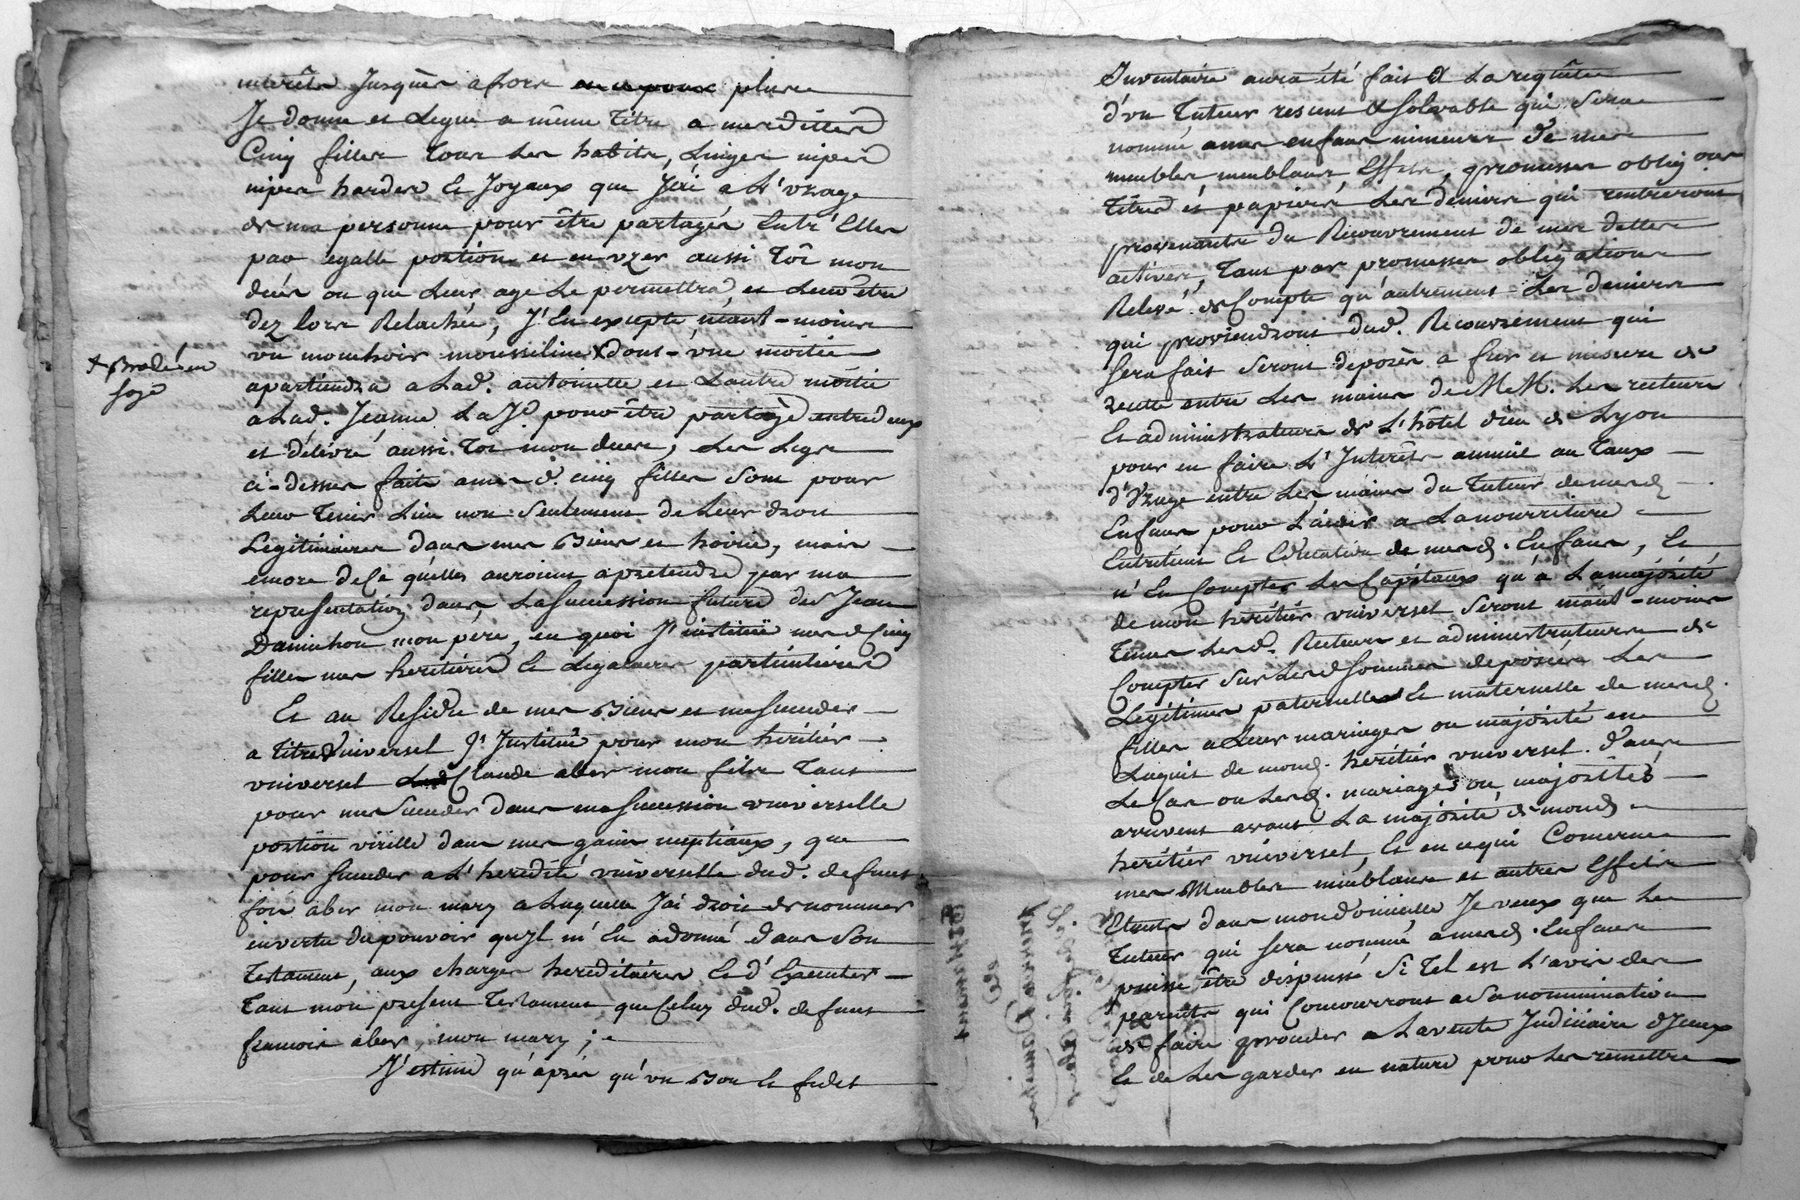 interêts Jusques alors plus
Je donne et Legue a même titre a mesdittes
Cinq filles tous Les habits, Linges nipes
nipes hardes Et Joyaux que J'eré a L'vzage
de ma personne pour être partagés Entr'Elles
par egalle portion et en vzer aussi tôt mon
décés ou que Leur age Le permettra et Leur être
dez lors Relaché, J'En excepte néant-moins
vn mouchoir mousseline X dont vne moitié
apartiendra a Lad. antoinette et L'autre moitié
a Lad. Jeanne La Je pour être partagé entre deux
et délivré aussi-tot mon deces, Les Legs
ci-dessus faits a mes d. cinq filles sont pour
Leur tenir Lieu non-seulement de Leur droit
Légitimaires dans mes Biens et hoirie, mais
encore de Ce quelles auroient a pretendre par ma
representation dans La succession future de Sr Jean
Damichon mon pére, en quoi J'institüe mes d Cinq
filles mes heritières Et Legataires particulières
Et au Residu de mes Biens et me succeder
a titre vniversel J'Institüe pour mon héritier
vniversel Claude aber mon fils tant
pour me succeder dans ma succession vniverselle
portion virille dans mes gains nuptiaux, que
pour succeder a L'heredité vniverselle dud. defunt
foi aber mon mary a Laquelle J'ai droit de nommer
en vertu du pouvoir qu'Jl m'En a donné dans son
testament, aux charges hereditaires Et d'Executer
tant mon present testament que Celuy dud. defunt
francois aber, mon mary ;
J'estime qu'après qu'vn Bon Et fidel
X Brodée en
soye
Inventaire aura été fait Et La requête
d'vn tuteur resseant Et solvable qui sera
nommé a mes enfans mineurs de mes
meubles meublans Effets, promesses obligons
titres et papiers Les deniers qui rentreront
provenants du Recouvrement de mes dettes
actives, tant par promesses obligations
Relevé de Compte qu'autrement Les deniers
qui proviendront dud. Recouvrement qui
sera fait seront deposés a fur et mesure de
recette entre Les mains de M.M. Les recteurs
Et administrateurs de L'hôtel dieu de Lyon
pour en faire L'Interêt annuel au taux
d'Vzage entre Les mains du tuteur de mesd
Enfans pour L'aider a La nourriture
Entretiens Et Education de mesd. Enfans, Et
n'En Compter Les Capitaux qu'a La majorité
de mon héritier vniversel seront néant-moins
tenus Lesd. Recteurs et administrateurs de
Compter sur Lesd sommes deposées Les
Legitimes paternelles Et maternelle de mesd.
filles a Leurs mariages ou majorité en
L'aquit de mond. héritier vniversel. dans
Le Cas ou Lesd. mariages ou majorittés
arrivent avant La majorité de mond
heritier vniversel, Et en ce qui Concerne
mes Meubles meublans et autres Effets
Etants dans mon domicille Je veux que Le
tuteur qui sera nommé a mesd. Enfans
puisse être dispensé Si tel est L'avis des
parents qui Concourront a sa nommination
de faire proceder a La vente Judiciaire d'Jceux
Et de Les garder en nature pour Les remettre